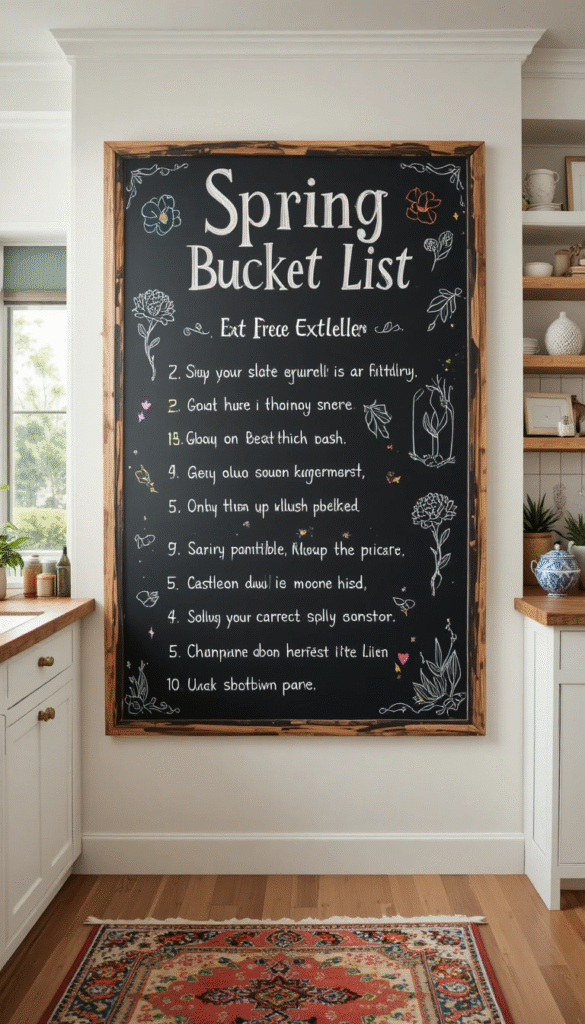 Spring
Bucket List
Ext Frece Extlelles
2. Siuy your slate grurell is ar Fitfdlry,
2. Goat hure i thoinoy snere
13. Gbauy on Beat thich oash.
9. Gery oluo soeun kugormerst,
5. Onhy then up wllush pbelked.
9. Sarivy pantitble, Kloup the pricare,
5. Castleon daul is moone hisd,
4. Soliuy your carrect splly sonstor,
5. Chanpnane abon herfest i1te Liien
10. Uack sbotbiwn pane.